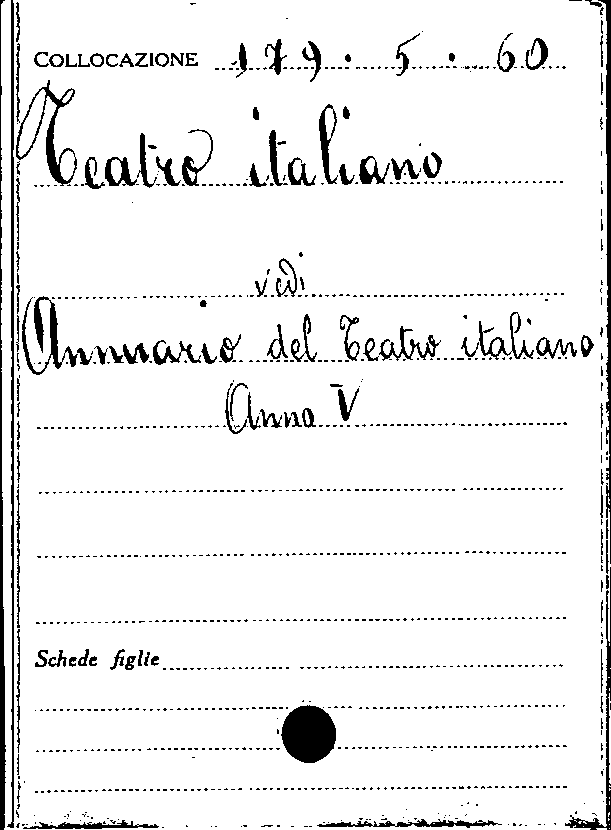 COLLOCAZIONE 179.5.60
Teatro italiano
vedi
Annuario del Teatro italiano
Anno V
Schede figlie